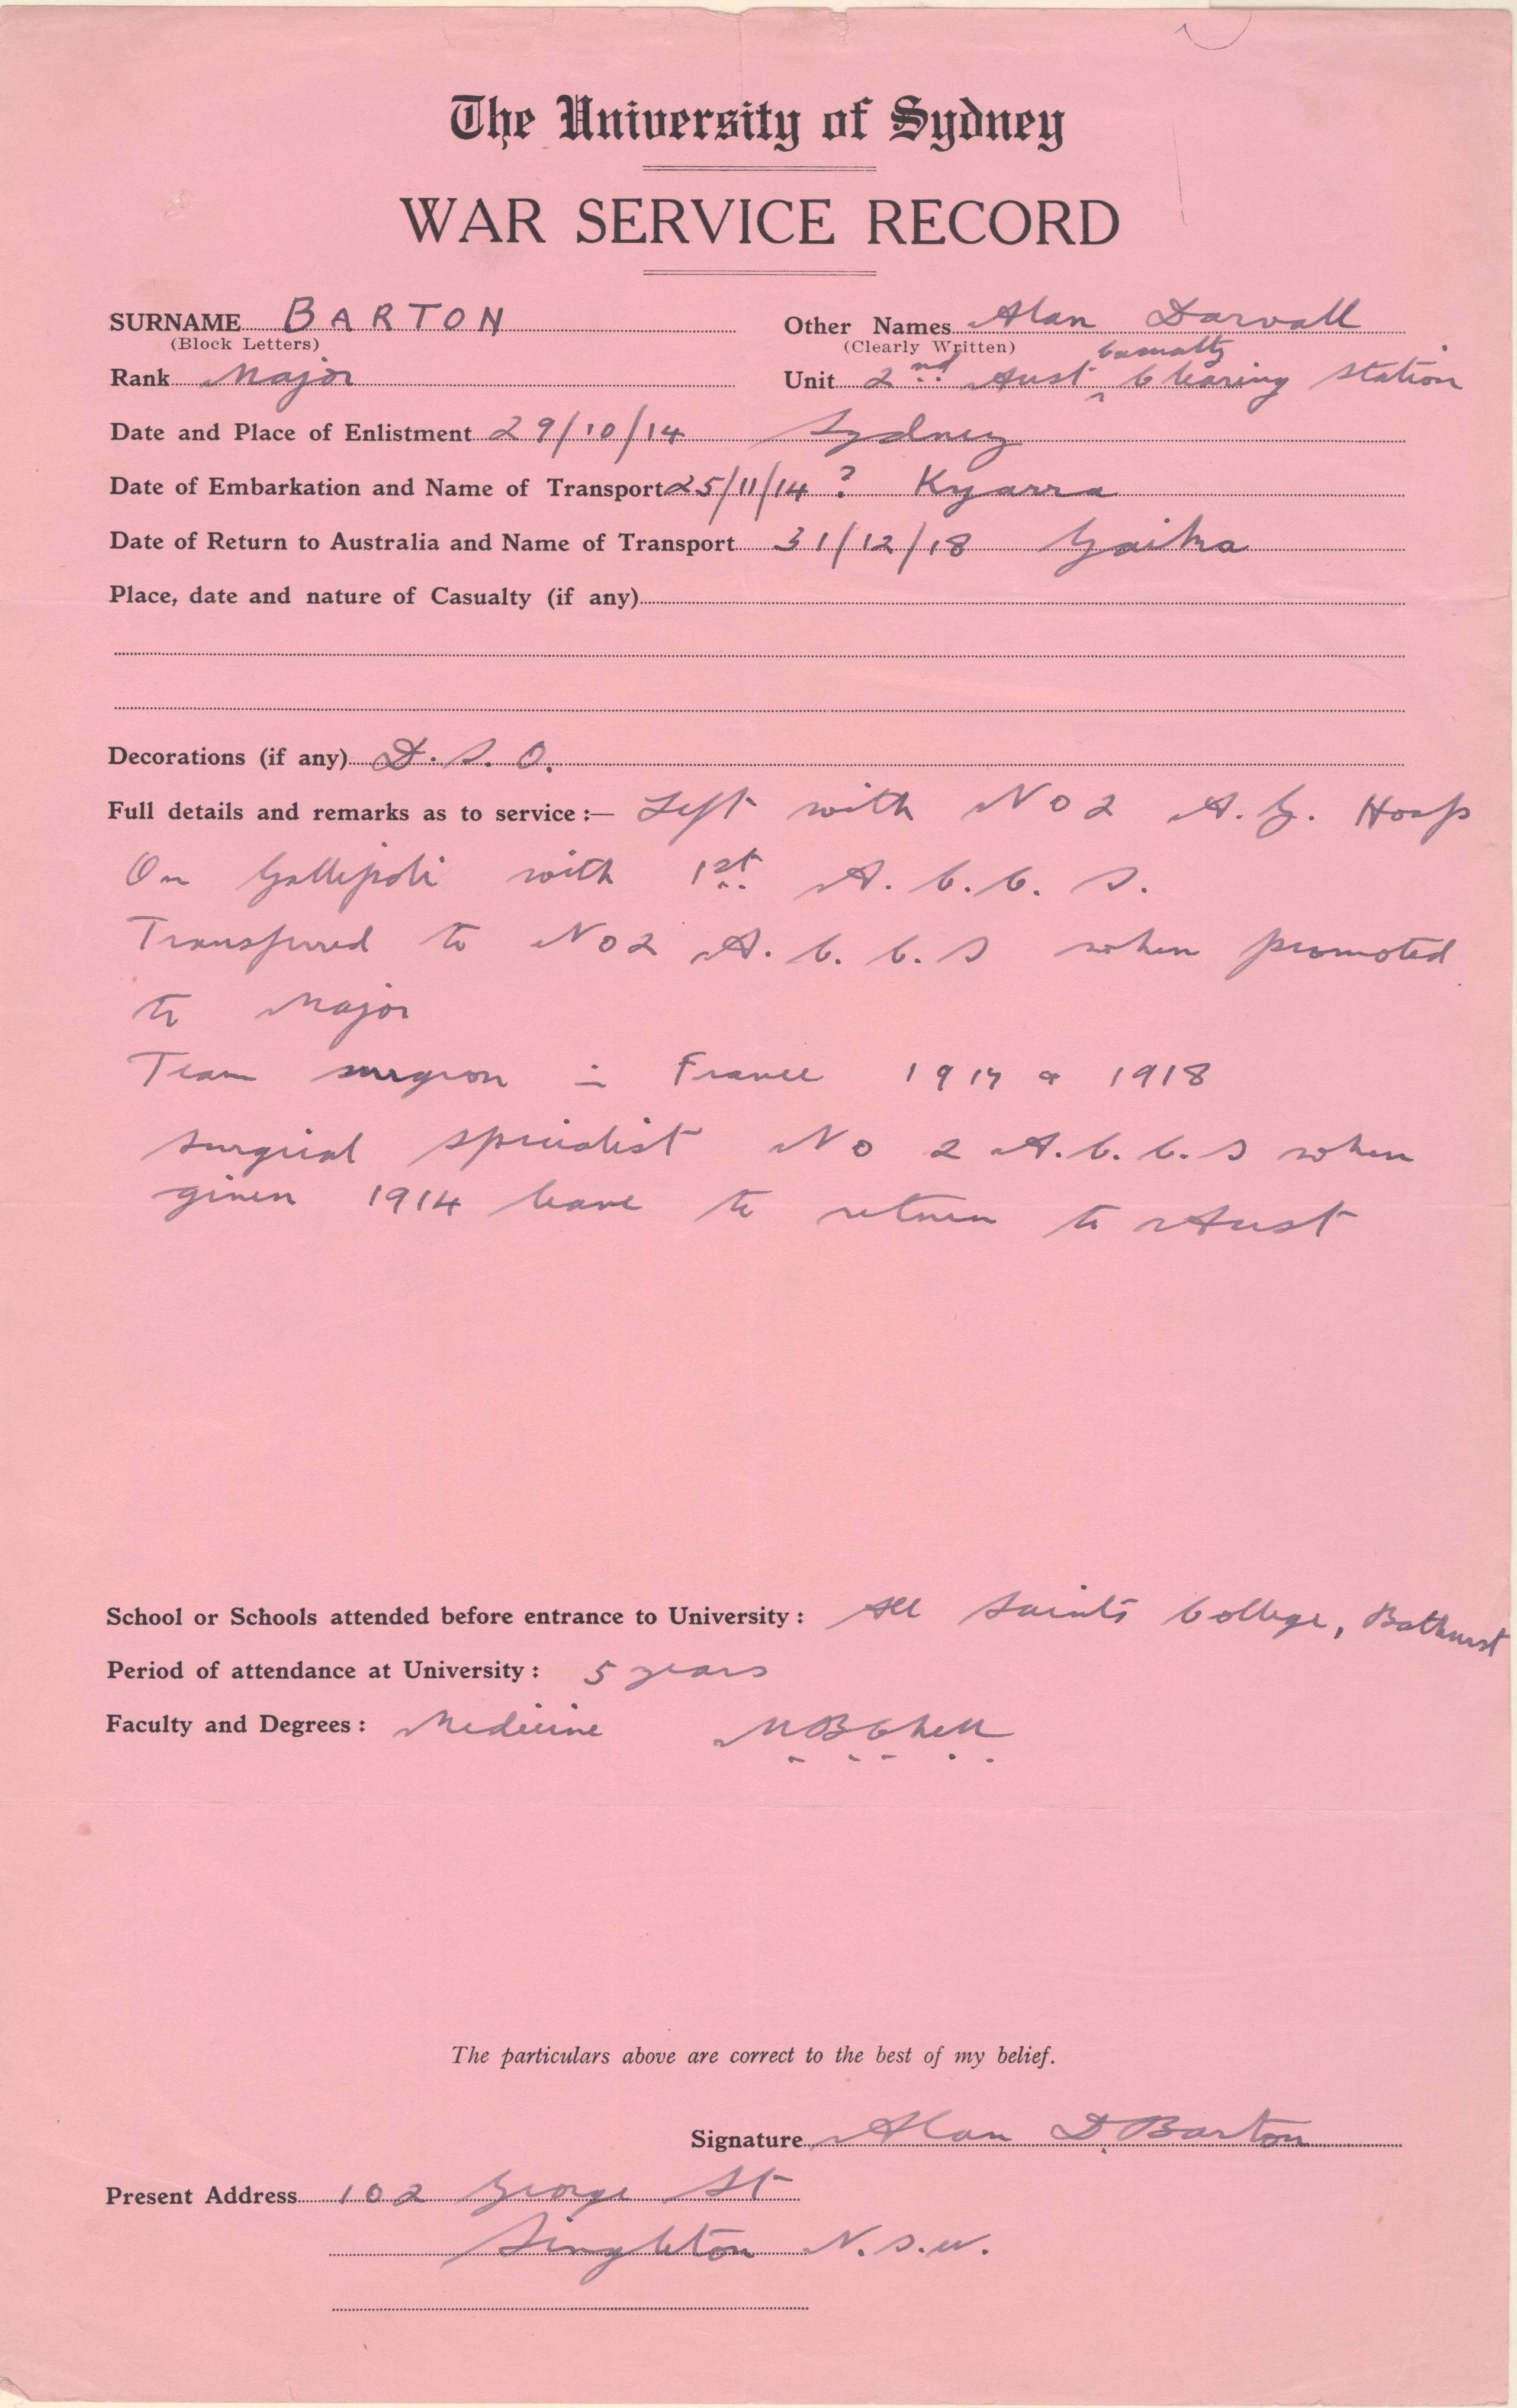 The University of Sydney
WAR SERVICE RECORD
SURNAME BARTON Other Names Alan Darvall
(Block Letters) (Clearly Written)
Rank Major Unit 2nd Aust Casualty Clearing Station
Date and Place of Enlistment 29/10/14 Sydney
Date of Embarkation and Name of Transport 25/11/14 ? Kyarra
Date of Return to Australia and Name of Transport 31/12/18 Gaika
Place, date and nature of Casualty (if any)
Decorations (if any) D.S.O.
Full details and remarks as to service :— Left with No 2 A.G. Hosp
On Gallipoli with 1st A.C.C.S.
Transferred to No 2 A.C.C.S when promoted
to Major
Team surgeon in France 1917 & 1918
Surgical specialist No 2 A.C.C.S when
given 1914 leave to return to Aust
School or Schools attended before entrance to University : All Saints College, Bathurst
Period of attendance at University : 5 years
Faculty and Degrees : Medicine MB ChM
The particulars above are correct to the best of my belief.
Signature Alan D. Barton
Present Address 102 George St
Singleton N.S.W.